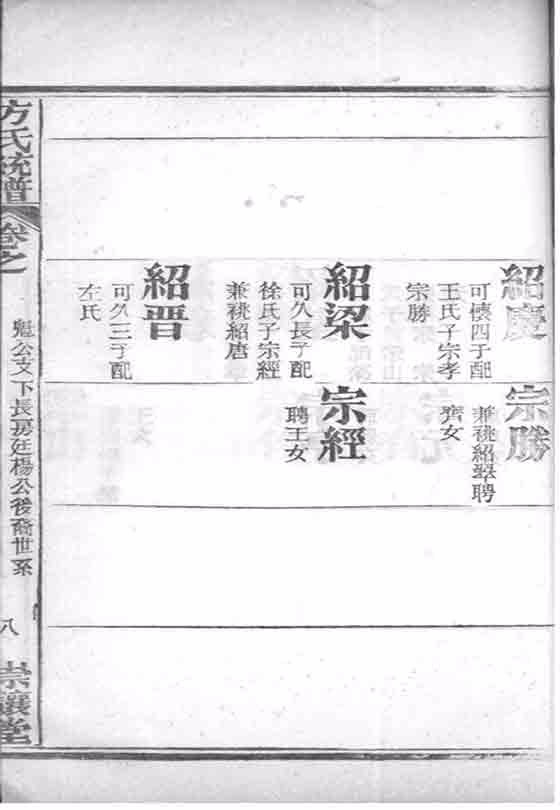 紹慶
可懷四子配
王氏子宗孝
宗勝
宗勝
兼祧紹舉聘
齊女
紹梁
可久長子配
徐氏子宗經
兼祧紹唐
宗經
聘王女
紹晋
可久三子配
左氏
方氏統譜
卷之
魁公支下長房廷楊公後裔世系
八
崇讓堂